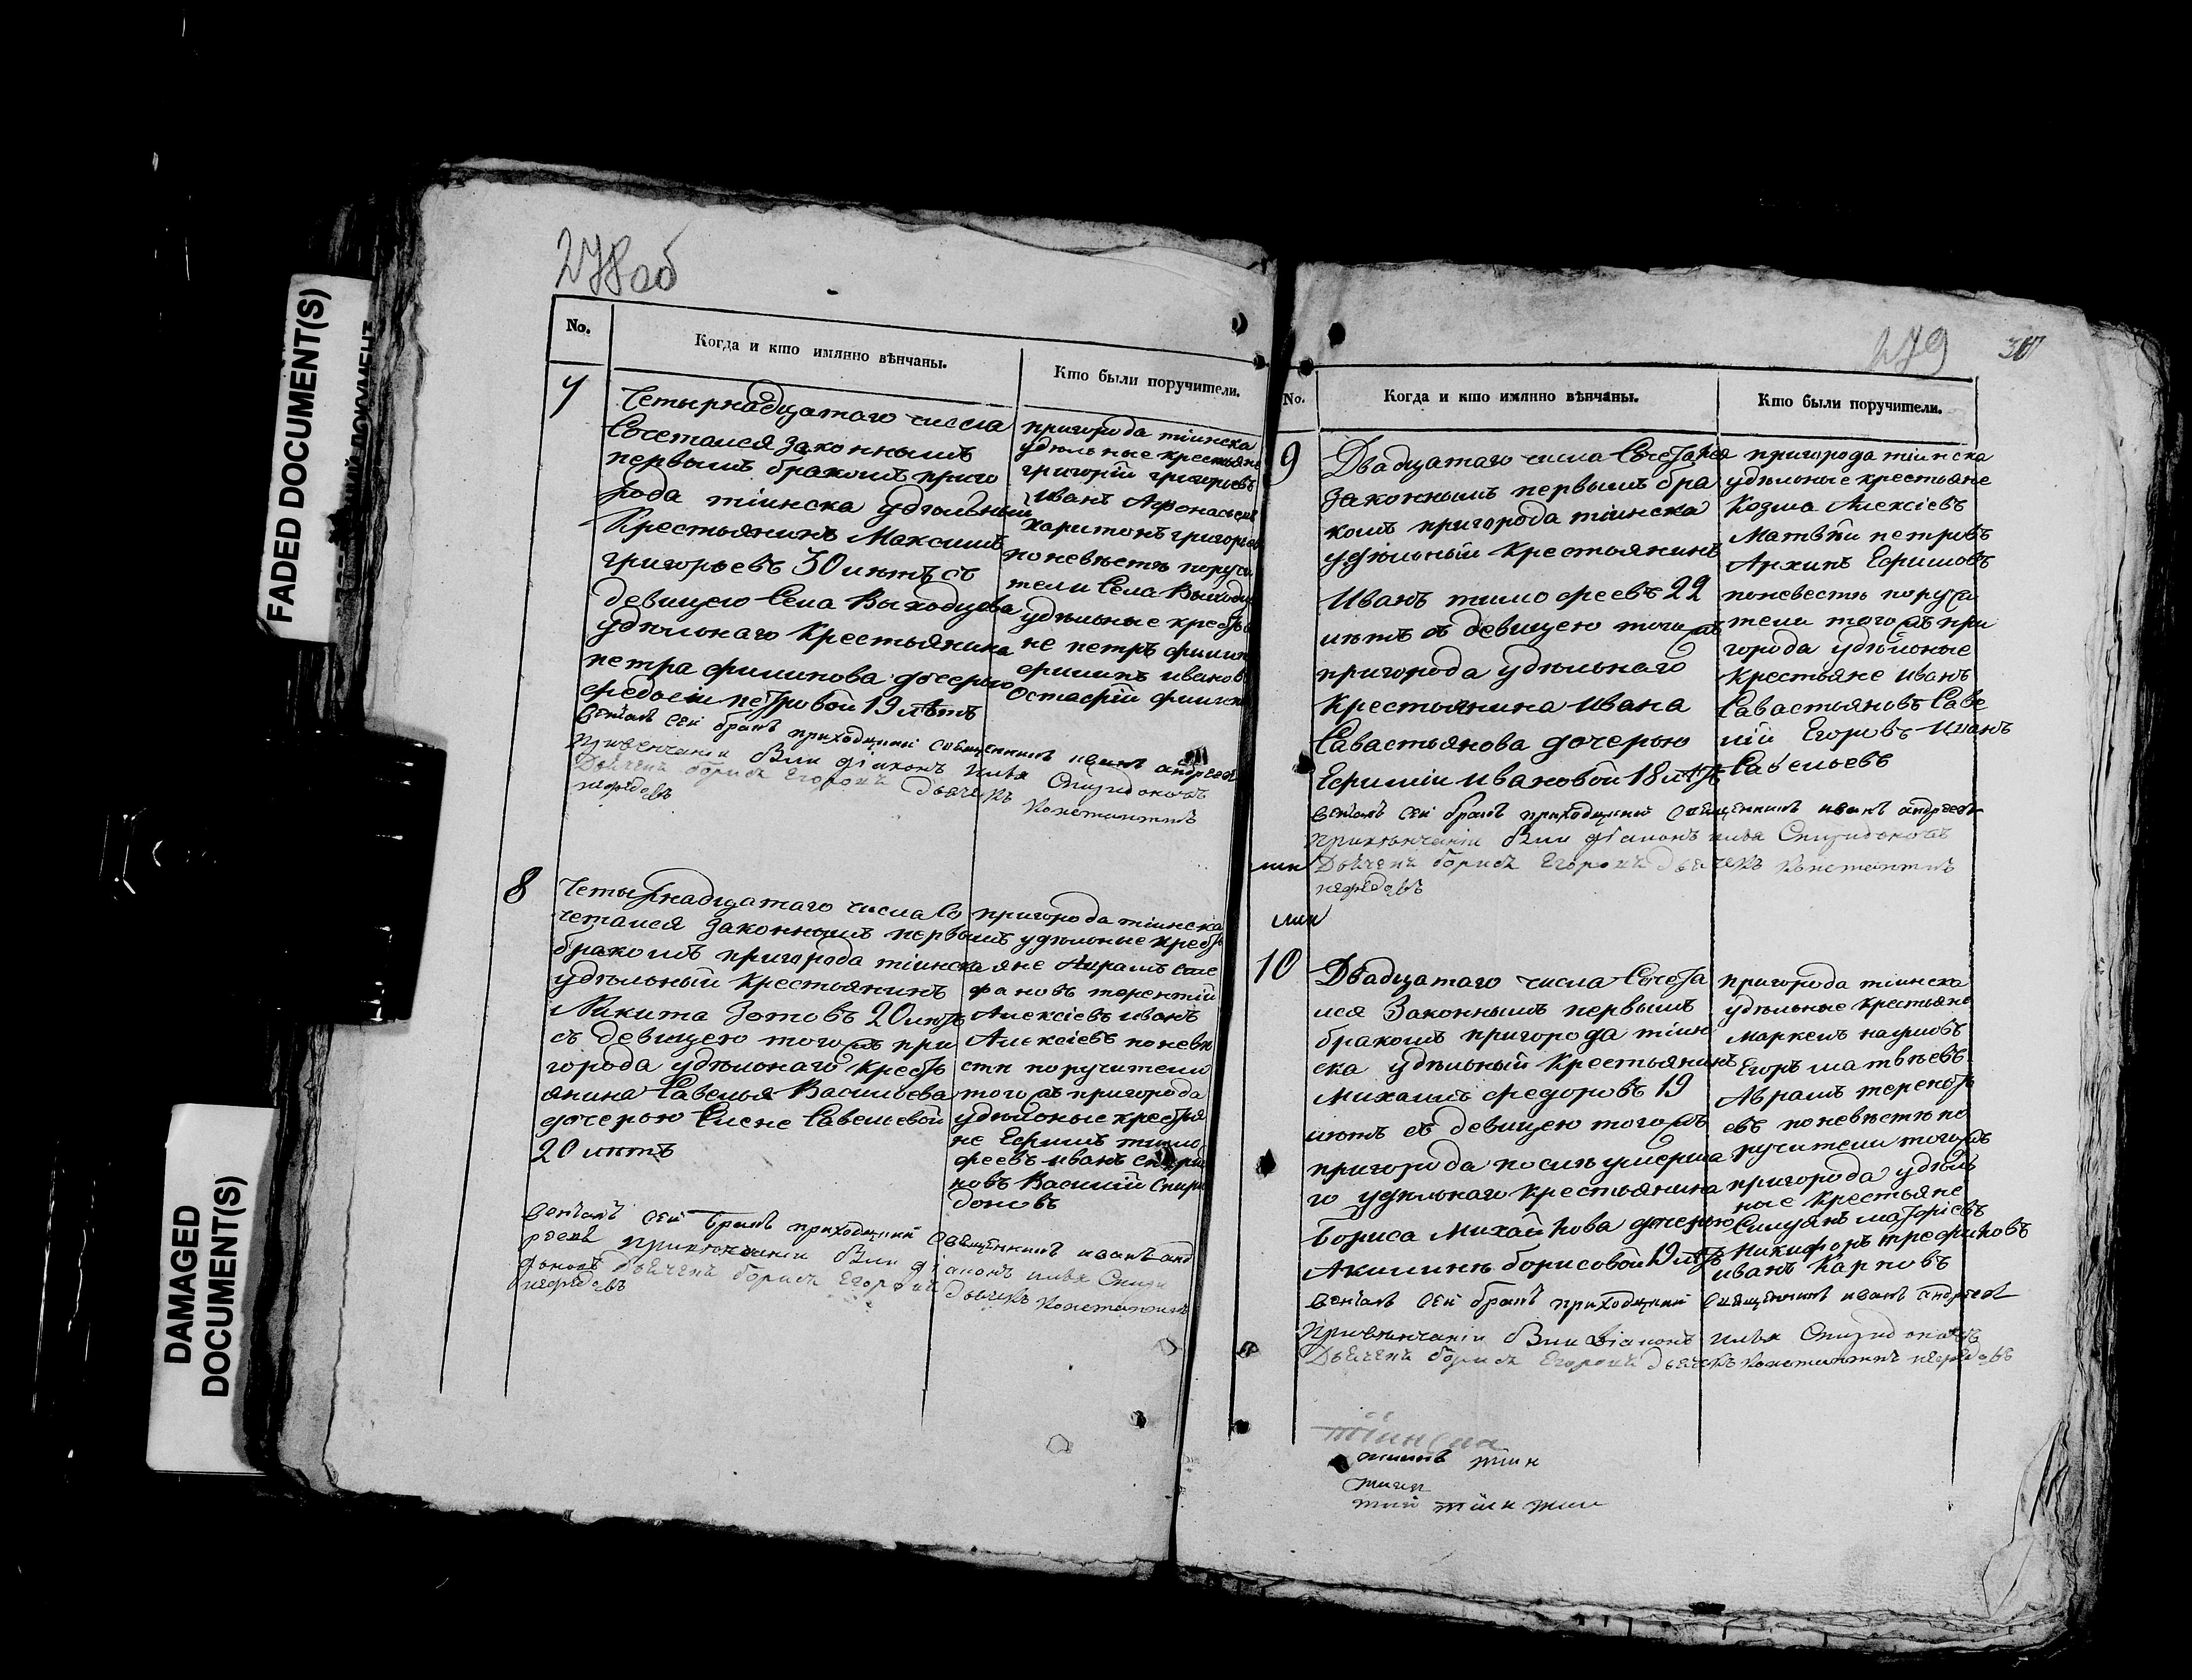 FADED DOCUMENT(S)
DAMAGED
DOCUMENT(S)
278об
No.
Когда и кто имянно вѣнчаны.
Кто были поручители.
7
Четырнадцатаго числа
Сочетался законнымъ
первымъ бракомъ приго
рода тіинска удѣльный
Крестьянинъ Максимъ
григорьевъ 30 лѣтъ съ
девицею Села Выходцова
удѣльнаго Крестьянина
петра филипова дочерью
федосьи петровой 19 лѣтъ
пригорода тіинска
удѣльные крестьяне
григорій григорьевъ
Иванъ Афонасьевъ
харитонъ григорьев
поневѣстѣ поручи
тели Села Выходц
удѣльные крестья
не петръ филип
филипъ иванов
Остафій филип
Венчалъ сей бракъ приходцкий священникъ иванъ андреевъ
Привенчаніи были діаконъ илья Спиридоновъ
Дьячекъ борисъ Егоровъ Дьячекъ Константинъ
нефедовъ
8
Четырнадцатаго числа Со
четался законнымъ первымъ
бракомъ пригорода тіинска
удѣльный Крестьянинъ
Никита Зотовъ 20 лѣтъ
съ девицею тогожъ при
города удѣльнаго Кресть
янина Савелья Васильева
дочерью Елене Савельевой
20 лѣтъ
пригорода тіинска
удѣльные кресть
яне Аврамъ Сте
фановъ терентій
Алексіевъ иванъ
Алексіевъ поневѣ
стѣ поручители
тогожъ пригорода
удѣльные крестья
не Ефимъ тимо
феевъ иванъ Спири
новъ Василій Спири
доновъ
Венчалъ Сей бракъ приходцкий Священникъ иванъ анд
реевъ Привенчаніи были діаконъ илья Спири
доновъ дьячекъ борисъ Егоровъ Дьячекъ Константинъ
нефедовъ
279
No.
Когда и кто имянно вѣнчаны.
Кто были поручители.
9
Двадцатаго числа Сочетался
Законнымъ первымъ бра
комъ пригорода тіинска
удѣльный Крестьянинъ
Иванъ тимофеевъ 22
лѣтъ съ девицею тогожъ
пригорода удѣльнаго
Крестьянина Ивана
Савастьянова дочерью
Ефиміи Ивановой 18 лѣтъ
пригорода тіинска
удѣльные крестьяне
Козма Алексіевъ
Матвѣй петровъ
Архипъ Ефимовъ
поневестѣ поручи
тели тогожъ при
города удѣльные
Крестьяне иванъ
Савастьяновъ Саве
лій Егоровъ Иванъ
Савельевъ
Венчалъ Сей бракъ приходцкий Священникъ иванъ андреевъ
Привѣнчаніи были діаконъ илья Спиридоновъ
Дьячекъ борисъ Егоровъ Дьячекъ Константинъ
нефедовъ
10
Двадцатаго числа Сочета
лся Законнымъ первымъ
бракомъ пригорода тіин
ска удѣльный Крестьянинъ
Михаилъ федоровъ 19
лѣтъ съ девицею тогожъ
пригорода послѣ умерша
го удѣльнаго крестьянина
Бориса Михайлова дочерью
Акилинѣ борисовой 19 лѣтъ
пригорода тіинска
удѣльные Крестьяне
Маркелъ наумовъ
Егоръ матвѣевъ
Аврамъ теренть
евъ поневѣстѣ по
ручители тогожъ
пригорода удѣль
ные крестьяне
Никифоръ трефиловъ
иванъ Карповъ
Венчалъ Сей бракъ приходцкий Священникъ иванъ андреевъ
Привѣнчаніи были Діаконъ илья Спиридоновъ
Дьячекъ борисъ Егоровъ Дьячекъ Константинъ нефедовъ
тіинска
тіин
тіин